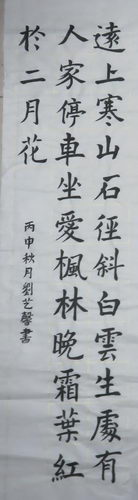 遠上寒山石徑斜白雲生處有
人家停車坐愛楓林晚霜葉紅
於二月花
丙申秋月劉艺馨書